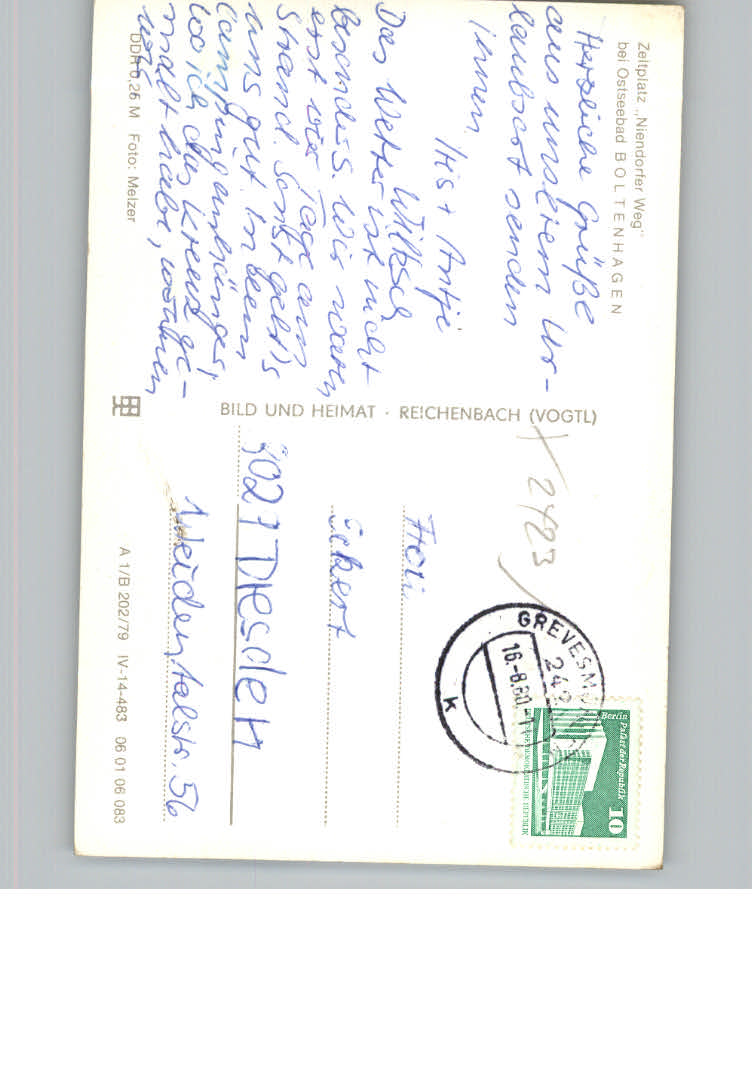 Zeltplatz „Niendorfer Weg"
bei Ostseebad BOLTENHAGEN
Herzliche Grüße
aus unserem Ur-
laubsort senden
Ihnen
Iris + Antje
Das Wetter ist nicht
besonders. Wir waren
erst vier Tage am
Strand. Sonst geht's
uns gut. In dem
Campinganhänger,
wo ich das Kreuz ge-
malt habe, wohnen
wir.
DDR 0,25 M Foto: Melzer
BILD UND HEIMAT · REICHENBACH (VOGTL)
X 2423
GREVESM
242
16.-8.80
K
Berlin Palast der Republik
10
DEUTSCHE DEMOKRATISCHE REPUBLIK
Eckert
8021 Dresden
56
A 1/B 202/79 IV-14-483 06 01 06 083